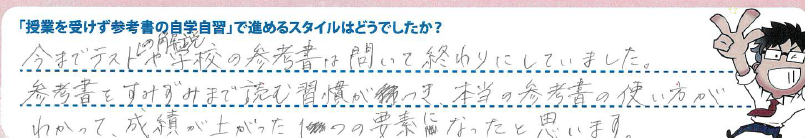 「授業を受けず参考書の自学自習」で進めるスタイルはどうでしたか?
の解説
今までテストや学校の参考書は問いて終わりにしていました。
参考書をすみずみまで読む習慣がつき、本当の参考書の使い方が
わかって、成績が上がった1つの要素になったと思います。